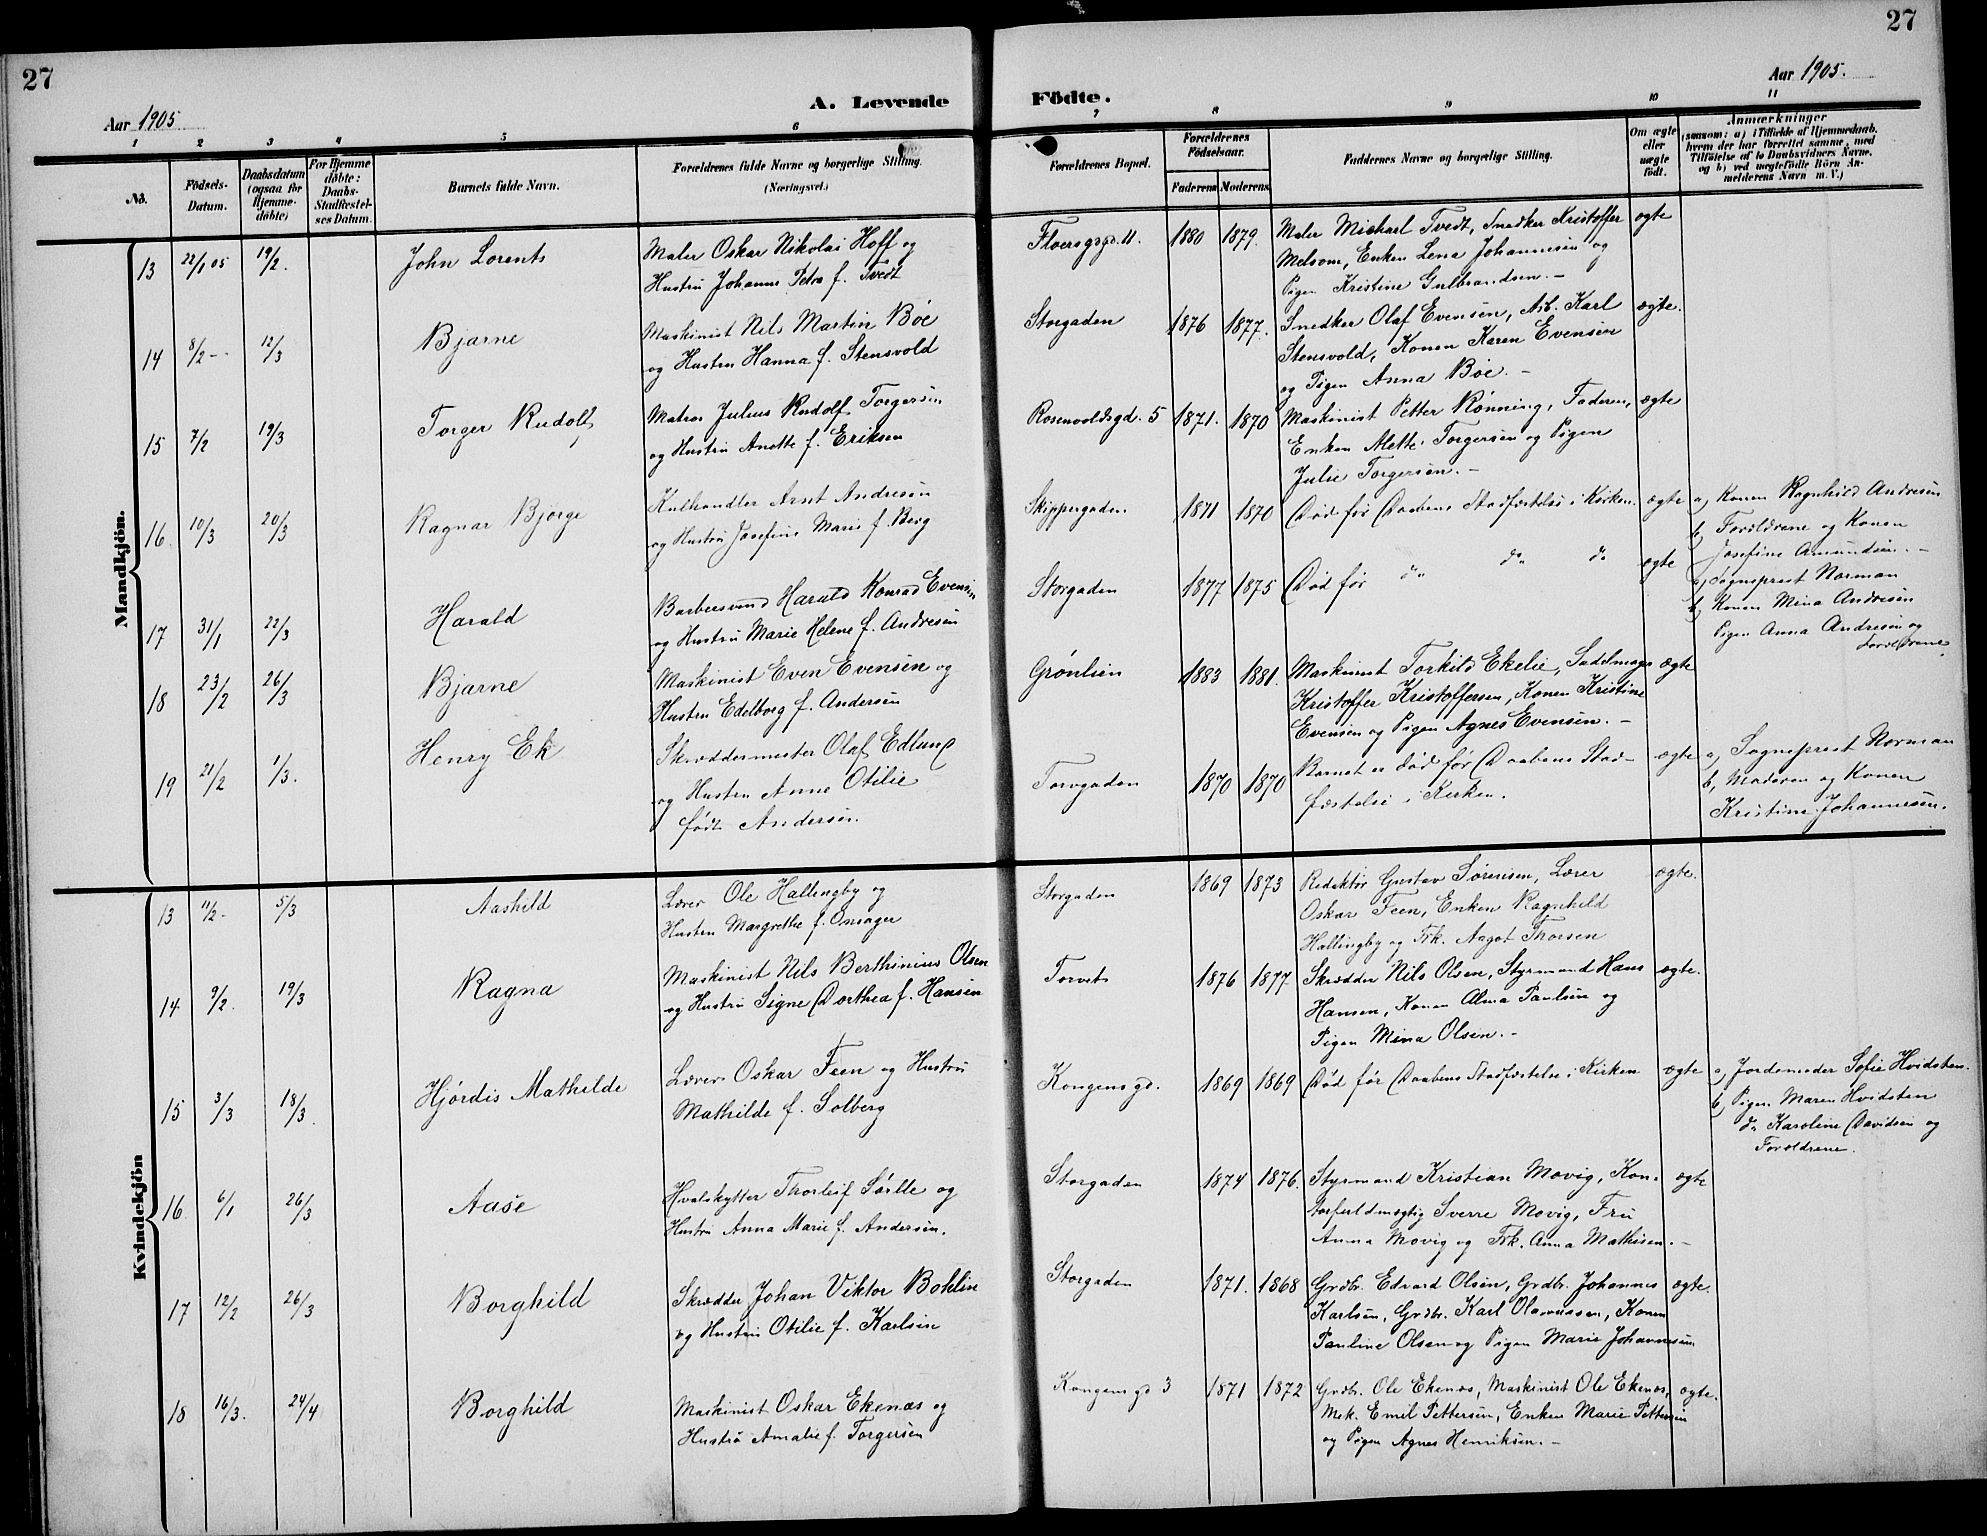 27
27
Aar 1905
A. Levende Födte.
Aar 1905.
1 2 3 4 5 6 7 8 9 10 11
No.
Födsels-Datum.
Daabsdatum (ogsaa for Hjemme-döbte)
For Hjemme döbte: Daabs-Stadfæstel-ses Datum.
Barnets fulde Navn.
Forældrenes fulde Navne og borgerlige Stilling. (Næringsvei.)
Forældrenes Bopæl.
Forældrenes Födselsaar.
Faderens
Moderens
Faddernes Navne og borgerlige Stilling.
Om ægte eller uægte födt.
Anmærkninger
(saasom: a) i Tilfælde af Hjemmedaab, hvem der har forrettet samme, med Tilföielse af to Daabsvidners Navne, og b) ved uægtefödte Börn Anmelderens Navn m. V.)
Mandkjön.
13 22/1 05 19/2. John Lorents
Maler Oskar Nikolai Hoff og
Hustru Johanne Petra f. Tvedt
1880 1879.
Maler Michael Tvedt, Snedker Kristoffer
Melsom, Enken Lena Johannesen og
Pigen Kristine Gulbrandsen. -
ægte
14 8/2 - 12/3 Bjarne
Maskinist Nils Martin Bøe
og Hustru Hanna f. Stensvold
Storgaden 1876 1877.
Snedker Olaf Evensen, Arb. Karl
Stensvold, Konen Karen Evensen
og Pigen Anna Bøe. -
ægte.
15 7/2 19/3 Torger Rudolf
Matros Julius Rudolf Torgersen
og Hustru Anette f. Eriksen
Rosenvoldsgd. 5 1871. 1870
Maskinist Petter Rønning, Faderen,
Enken Mette Torgersen og Pigen
Julie Torgersen. -
ægte
16. 10/3 20/3 Ragnar Bjørge
Kulhandler Arnt Andresen
og Hustru Josefine Marie f. Berg
Skippergaden 1871 1870
Død før Daabens Stadfæstelse i Kirken.
ægte
a, Konen Ragnhild Andresen
b, Forældrene og Konen
Josefine Amundsen. -
17 31/1 22/3 Harald
Barbersvend Harald Konrad Evensen
og Hustru Marie Helene f. Andresen
Storgaden 1877 1875
Død før do do do
ægte
a, Sogneprest Norman
b, Konen Mina Andresen
Pigen Anna Andresen og
Forældrene.
18 23/2 26/3 Bjarne
Maskinist Even Evensen og
Hustru Edelborg f. Andersen
Grønlien 1883 1881.
Maskinist Torkild Ekelie, Sadelmager
Kristoffer Kristoffersen, Konen Kristine
Evensen og Pigen Agnes Evensen. -
ægte
19 21/2 1/3. Henry Ek
Skræddermester Olaf Edlund
og Hustru Anne Otilie
født Andersen.
Torvgaden 1870 1870
Barnet er død før Daabens Stad-
fæstelse i Kirken.
ægte
a, Sogneprest Norman
b, Moderen og Konen
Kristine Johannesen.
Kvindekjön
13 11/2 - 5/3 Aashild
Lærer Ole Hallingby og
Hustru Margrethe f. Onsager
Storgaden 1869 1873
Redaktør Gustav Sørensen, Lærer
Oskar Feen, Enken Ragnhild
Hallingby og Frk. Aagot Thorsen
ægte.
14 9/2. 19/3 Ragna
Maskinist Nils Berthinius Olsen
og Hustru Signe Dorthea f. Hansen
Torvet 1876 1877
Skrædder Nils Olsen, Styrmand Hans
Hansen, Konen Alma Paulsen og
Pigen Mina Olsen. -
ægte.
15 3/3 18/3. Hjørdis Mathilde
Lærer Oskar Feen og Hustru
Mathilde f. Solberg
Kongensgd. 1869 1869
Død før Daabens Stadfæstelse i Kirken
ægte
a, Jordemoder Sofie Hvidsten.
b, Pigen Maren Hvidsten
do Karoline Davidsen og
Forældrene.
16. 6/1 26/3 Aase
Hvalskytter Thorleif Sørlle og
Hustru Anna Marie f. Andersen.
Storgaden 1874 1876.
Styrmand Kristian Movig, Kon-
torfuldmægtig Sverre Movig, Fru
Anna Movig og Frk. Anna Mathisen. -
ægte
17 12/2 26/3 Borghild
Skrædder Johan Viktor Bohlin
og Hustru Otilie f. Karlsen
Storgaden 1871. 1868
Grdbr. Edvard Olsen, Grdbr. Johannes
Karlsen, Grdbr. Karl Olavussen, Konen
Pauline Olsen og Pigen Marie Johannesen
ægte.
18 16/3. 24/4 Borghild
Maskinist Oskar Ekenæs og
Hustru Amalie f. Torgersen
Kongensgd 3 1871 1872
Grdbr. Ole Ekenæs, Maskinist Ole Ekenæs,
Mek. Emil Pettersen, Enken Marie Pettersen
og Pigen Agnes Henriksen. -
ægte.